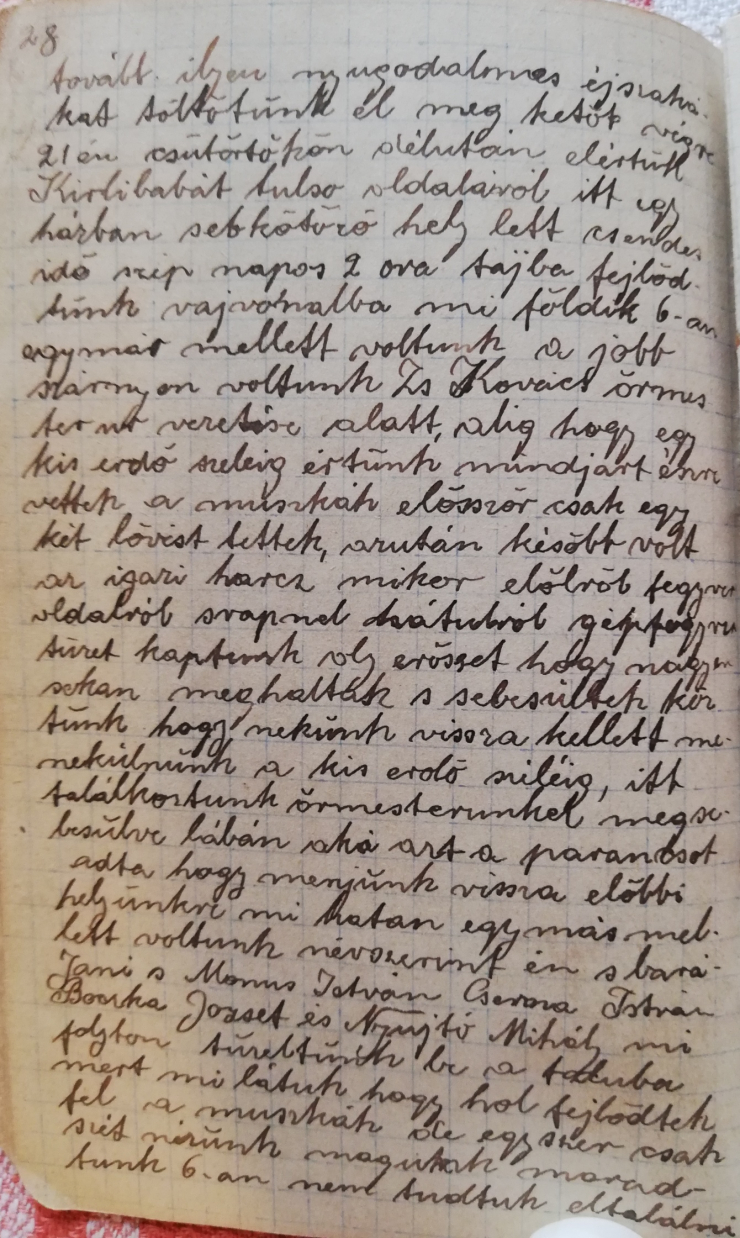 28
tovább ilyen nyugodalmas éjszaká-
kat töltötünk el meg ketöt végre
21 én csütörtökön délután elértük
Kirlibabát tulso oldaláról itt egy
házban sebkötöző hely lett csendes
idő szép napos 2 ora tájba fejlőd-
tünk rajvonalba mi földik 6-an
egymás mellett voltunk a jobb
szárnyon voltunk Zs Kovács őrmes
ter ur vezetése alatt, alig hogy egy
kis erdő széléig értünk mindjárt észre
vettek a muszkák elősször csak egy
két lövést tettek, azután később volt
az igazi harcz mikor előlről fegyver
oldalról srapnel hátulról gépfegyver
tüzet kaptunk oly erősset hogy nagyon
sokan meghaltak s sebesültek köz
tünk hogy nekünk vissza kellett me-
nekülnünk a kis erdő széléig, itt
találkoztunk őrmesterunkel megse-
besülve lábán aki azt a parancsot
adta hogy menjünk vissza előbbi
helyünkre mi hatan egymás mel-
lett voltunk névszerint én s bará-
Jani s Monus István Cserna István
Bocska Jozset és Nyujtó Mihály mi
folyton tüzeltünk be a faluba
mert mi látuk hogy hol fejlődtek
fel a muszkák de egyszer csak
szét nézünk magunk marad-
tunk 6-an nem tudtuk eltalálni